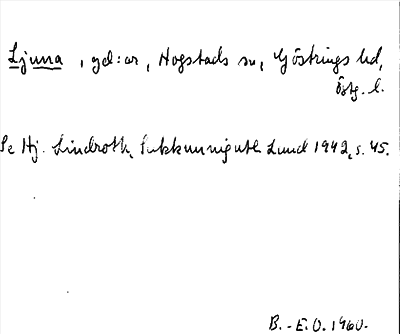 Ljuna, gd:ar, Hogstads sn, Göstrings hd,
Östg. l.
Se Hj. Lindroth, Lund 1942, s. 45.
B.-E.O. 1960.